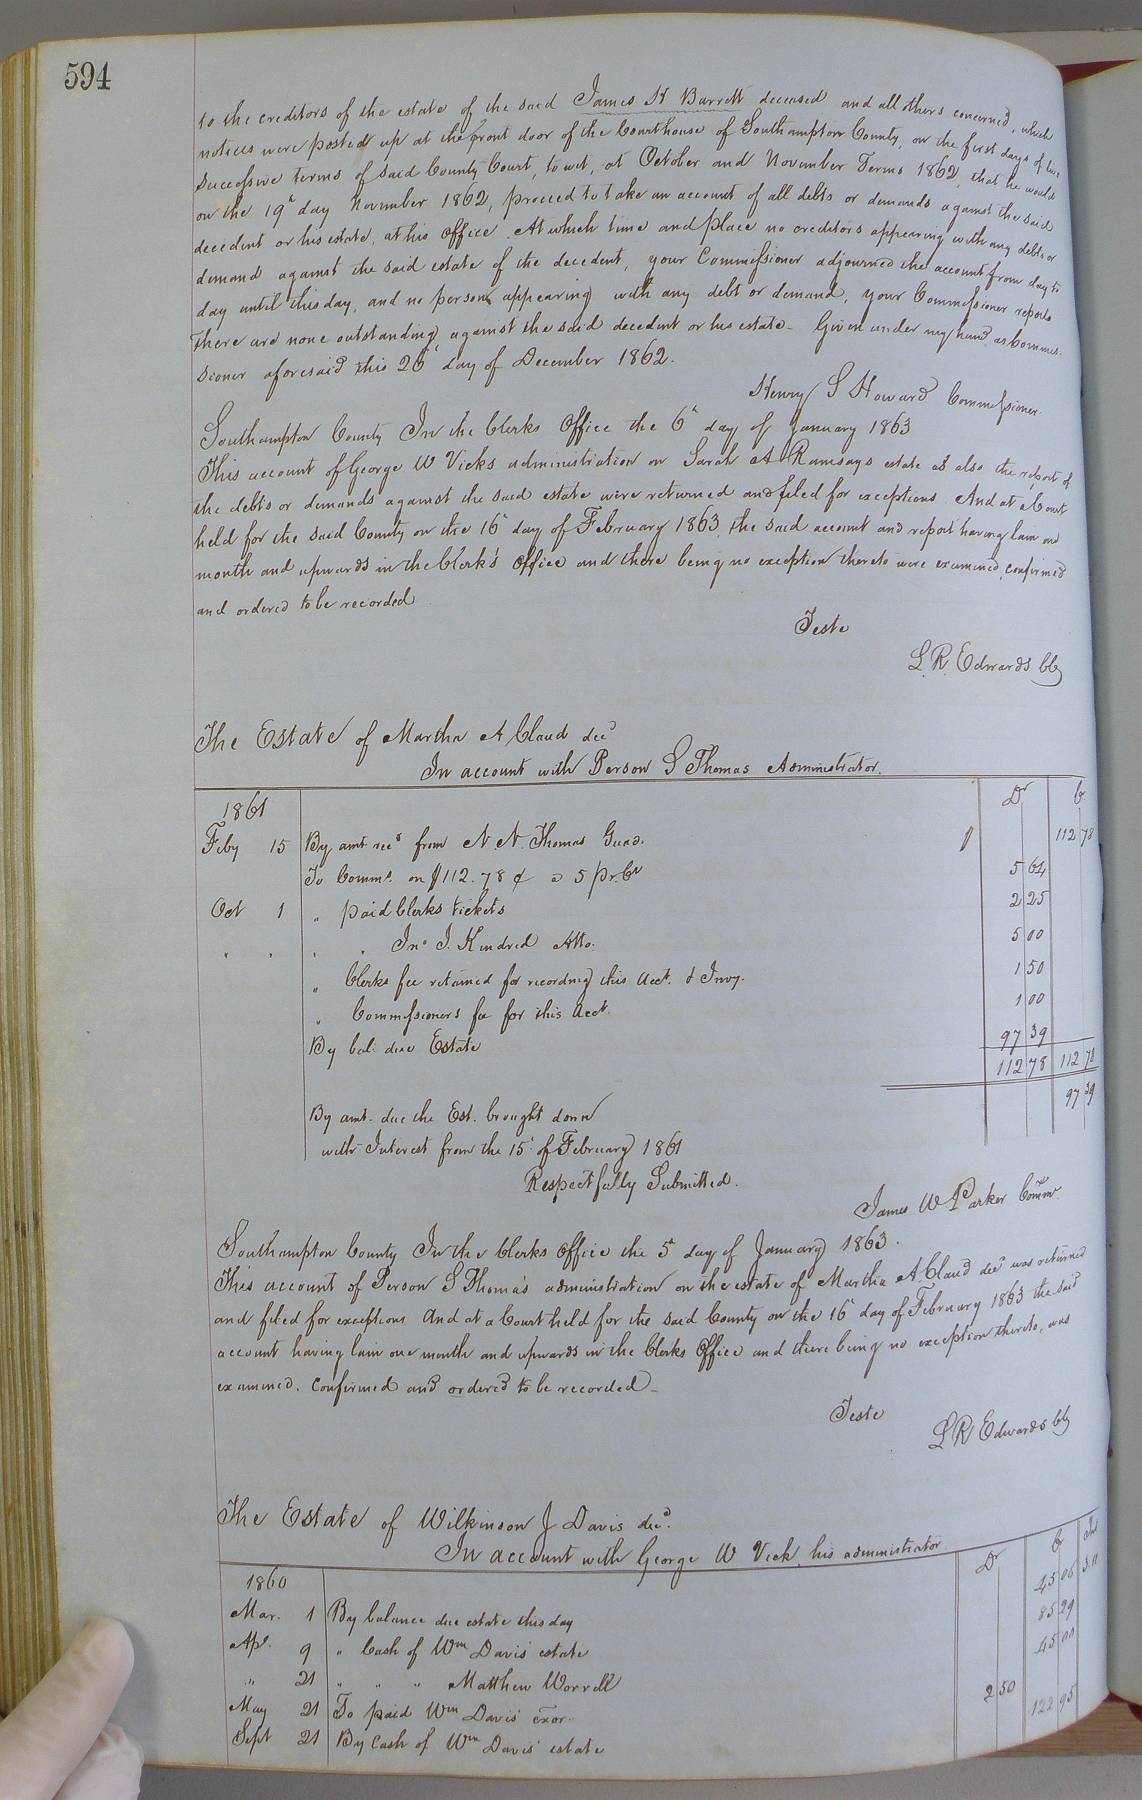 594
to the creditors of the estate of the said James H Barrett deceased and all others concerned, which
notices were posted up at the front door of the Courthouse of Southampton County, on the first days of two
successive terms of said County Court, to wit, at October and November Terms 1862, that he would
on the 19th day November 1862, proceed to take an account of all debts or demands against the said
decedent or his estate, at his office. At which time and place no creditors appearing with any debts or
demand against the said estate of the decedent, your Commissioner adjourned the account from day to
day until this day, and no persons appearing with any debt or demand, your Commissioner reports
there are none outstanding against the said decedent or his estate - Given under my hand as Commis-
sioner aforesaid this 26th day of December 1862.
Henry S Howard Commissioner.
Southampton County In the Clerks Office the 6th day of January 1863
This account of George W Vicks administration on Sarah A Ramsays estate as also the report of
the debts or demands against the said estate were returned and filed for exceptions. And at a Court
held for the said County on the 16th day of February 1863, the said account and report having lain one
month and upwards in the Clerk's Office and there being no exception thereto were examined, confirmed
and ordered to be recorded
Teste
L. R. Edwards Clk
The Estate of Martha A Claud decd
In account with Person S Thomas Administrator.
1861 Dr Cr
Feby 15 By amt recd from N. N. Thomas Guad. $ 112 78
To Comms. on $112.78 ¢ @ 5 pr. Ct 5 64
Oct 1 " paid Clerks tickets 2 25
" " " " Jno J. Kindred Atto. 5 00
" Clerks fee retained for recording this Acct. & Invy. 1 50
" Commissioners fee for this Acct. 1 00
By bal: due Estate 97 39
112 78 112 78
By amt. due the Est. brought down 97 39
with Interest from the 15th of February 1861
Respectfully Submitted.
James W Parker Commr.
Southampton County In the Clerks Office the 5th day of January 1863.
This account of Person S Thomas administration on the estate of Martha A. Claud decd was returned
and filed for exceptions And at a Court held for the said County on the 16th day of February 1863 the said
account having lain one month and upwards in the Clerks Office and there being no exception thereto, was
examined, confirmed and ordered to be recorded -
Teste
L R Edwards Clk
The Estate of Wilkinson J Davis decd.
In account with George W Vick, his administrator
1860 Dr Cr Int
Mar. 1 By balance due estate this day 45 06 3.11
Apl. 9 " Cash of Wm Davis' estate 85 29
" 21 " " " Matthew Worrell 45 00
May 21 To paid Wm Davis' exor. 2 50
Sept 21 By Cash of Wm Davis' estate 122 95